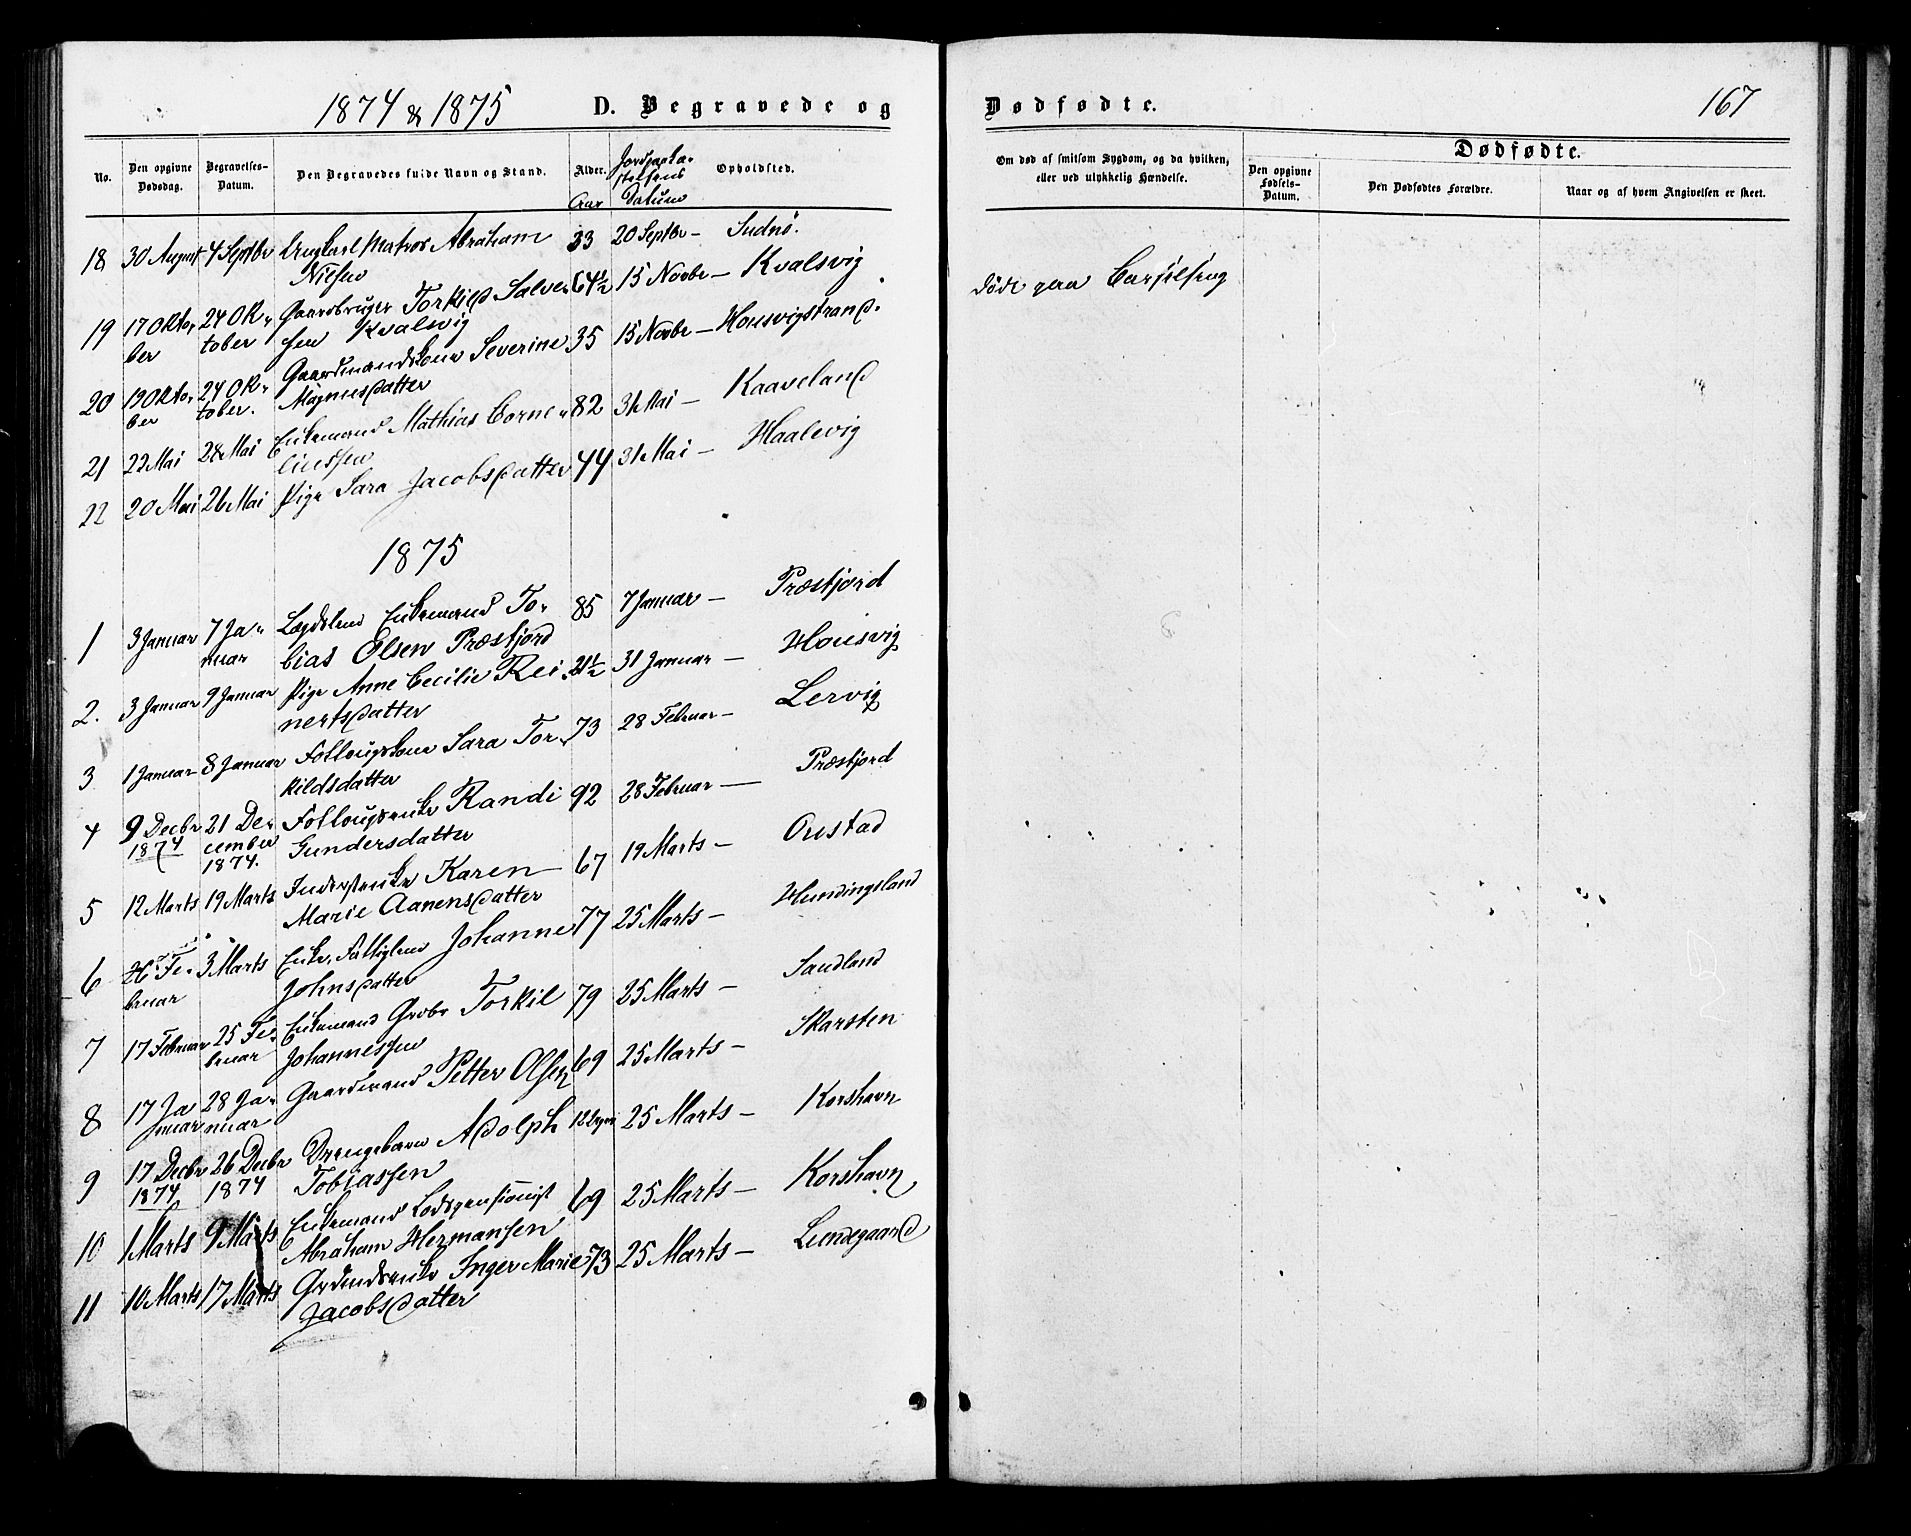 1874 & 1875 D. Begravede og
No. Den opgivne Dødsdag. Begravelses-Datum. Den Begravedes fulde Navn og Stand. Alder. Aar Jordpaaka-stelsens Datum Opholdsted.
18 30 August 4 Septbr Ungkarl Matros Abraham 33 20 Septbr – Sudnø.
Nilsen
19 17 Okto- 24 Ok- Gaardbruger Torkild Salve- 64½ 15 Novbr – Kvalsvig
ber tober sen Kvalsvig
20 19 Okto- 24 Ok- Gaardmandskone Severine 35 15 Novbr – Housvigstrand.
ber tober. Magnusdatter
21 22 Mai 28 Mai Enkemand Mathias Corne- 82 31 Mai – Kaaveland
liussen
22 20 Mai 26 Mai Pige Sara Jacobsdatter 44 31 Mai – Haalevig
1875
1 3 Januar 7 Ja- Lægdslem Enkemand To- 85 7 Januar – Præstjord
nuar bias Elsen Præstjord
2. 3 Januar 9 Januar Pige Anne Cecilie Rei- 21½ 31 Januar – Housvig
nertsdatter
3 1 Januar 8 Januar Follougskone Sara Tor- 73 28 Februar – Lervig
kildsdatter
4 9 Decbr 21 De- Follougsenke Randi 92 28 Februar – Præstjord
1874 cember Gundersdatter
1874.
5 12 Marts 19 Marts Inderstenke Karen 67 19 Marts – Oustad
Marie Aanensdatter
6 26 Fe- 3 Marts Enke, Fattiglem Johanne 77 25 Marts – Hundingsland
bruar Johnsdatter
7 17 Februar 25 Fe- Enkemand Torkil 79 25 Marts – Sandland
bruar Johannessen
8 17 Ja 28 Ja- Gaardmand Petter Olsen 69 25 Marts – Skarsten
nuar nuar
9 17 Decbr 26 Decbr Drengebarn Adolph 12 25 Marts – Korshavn
1874 1874 Tobiassen
10 1 Marts 9 Marts Enkemand Lodspensionist 69 25 Marts – Korshavn
Abraham Hermansen
11 10 Marts 17 Marts Inger Marie 73 25 Marts – Lundegaard
Jacobsdatter
Dødfødte. 167
Om død af smitsom Sygdom, og da hvilken, eller ved ulykkelig Hændelse.
Dødfødte.
Den opgivne Fødsels-Datum. Den Dødfødtes Forældre. Naar og af hvem Angivelsen er skeet.
døde paa